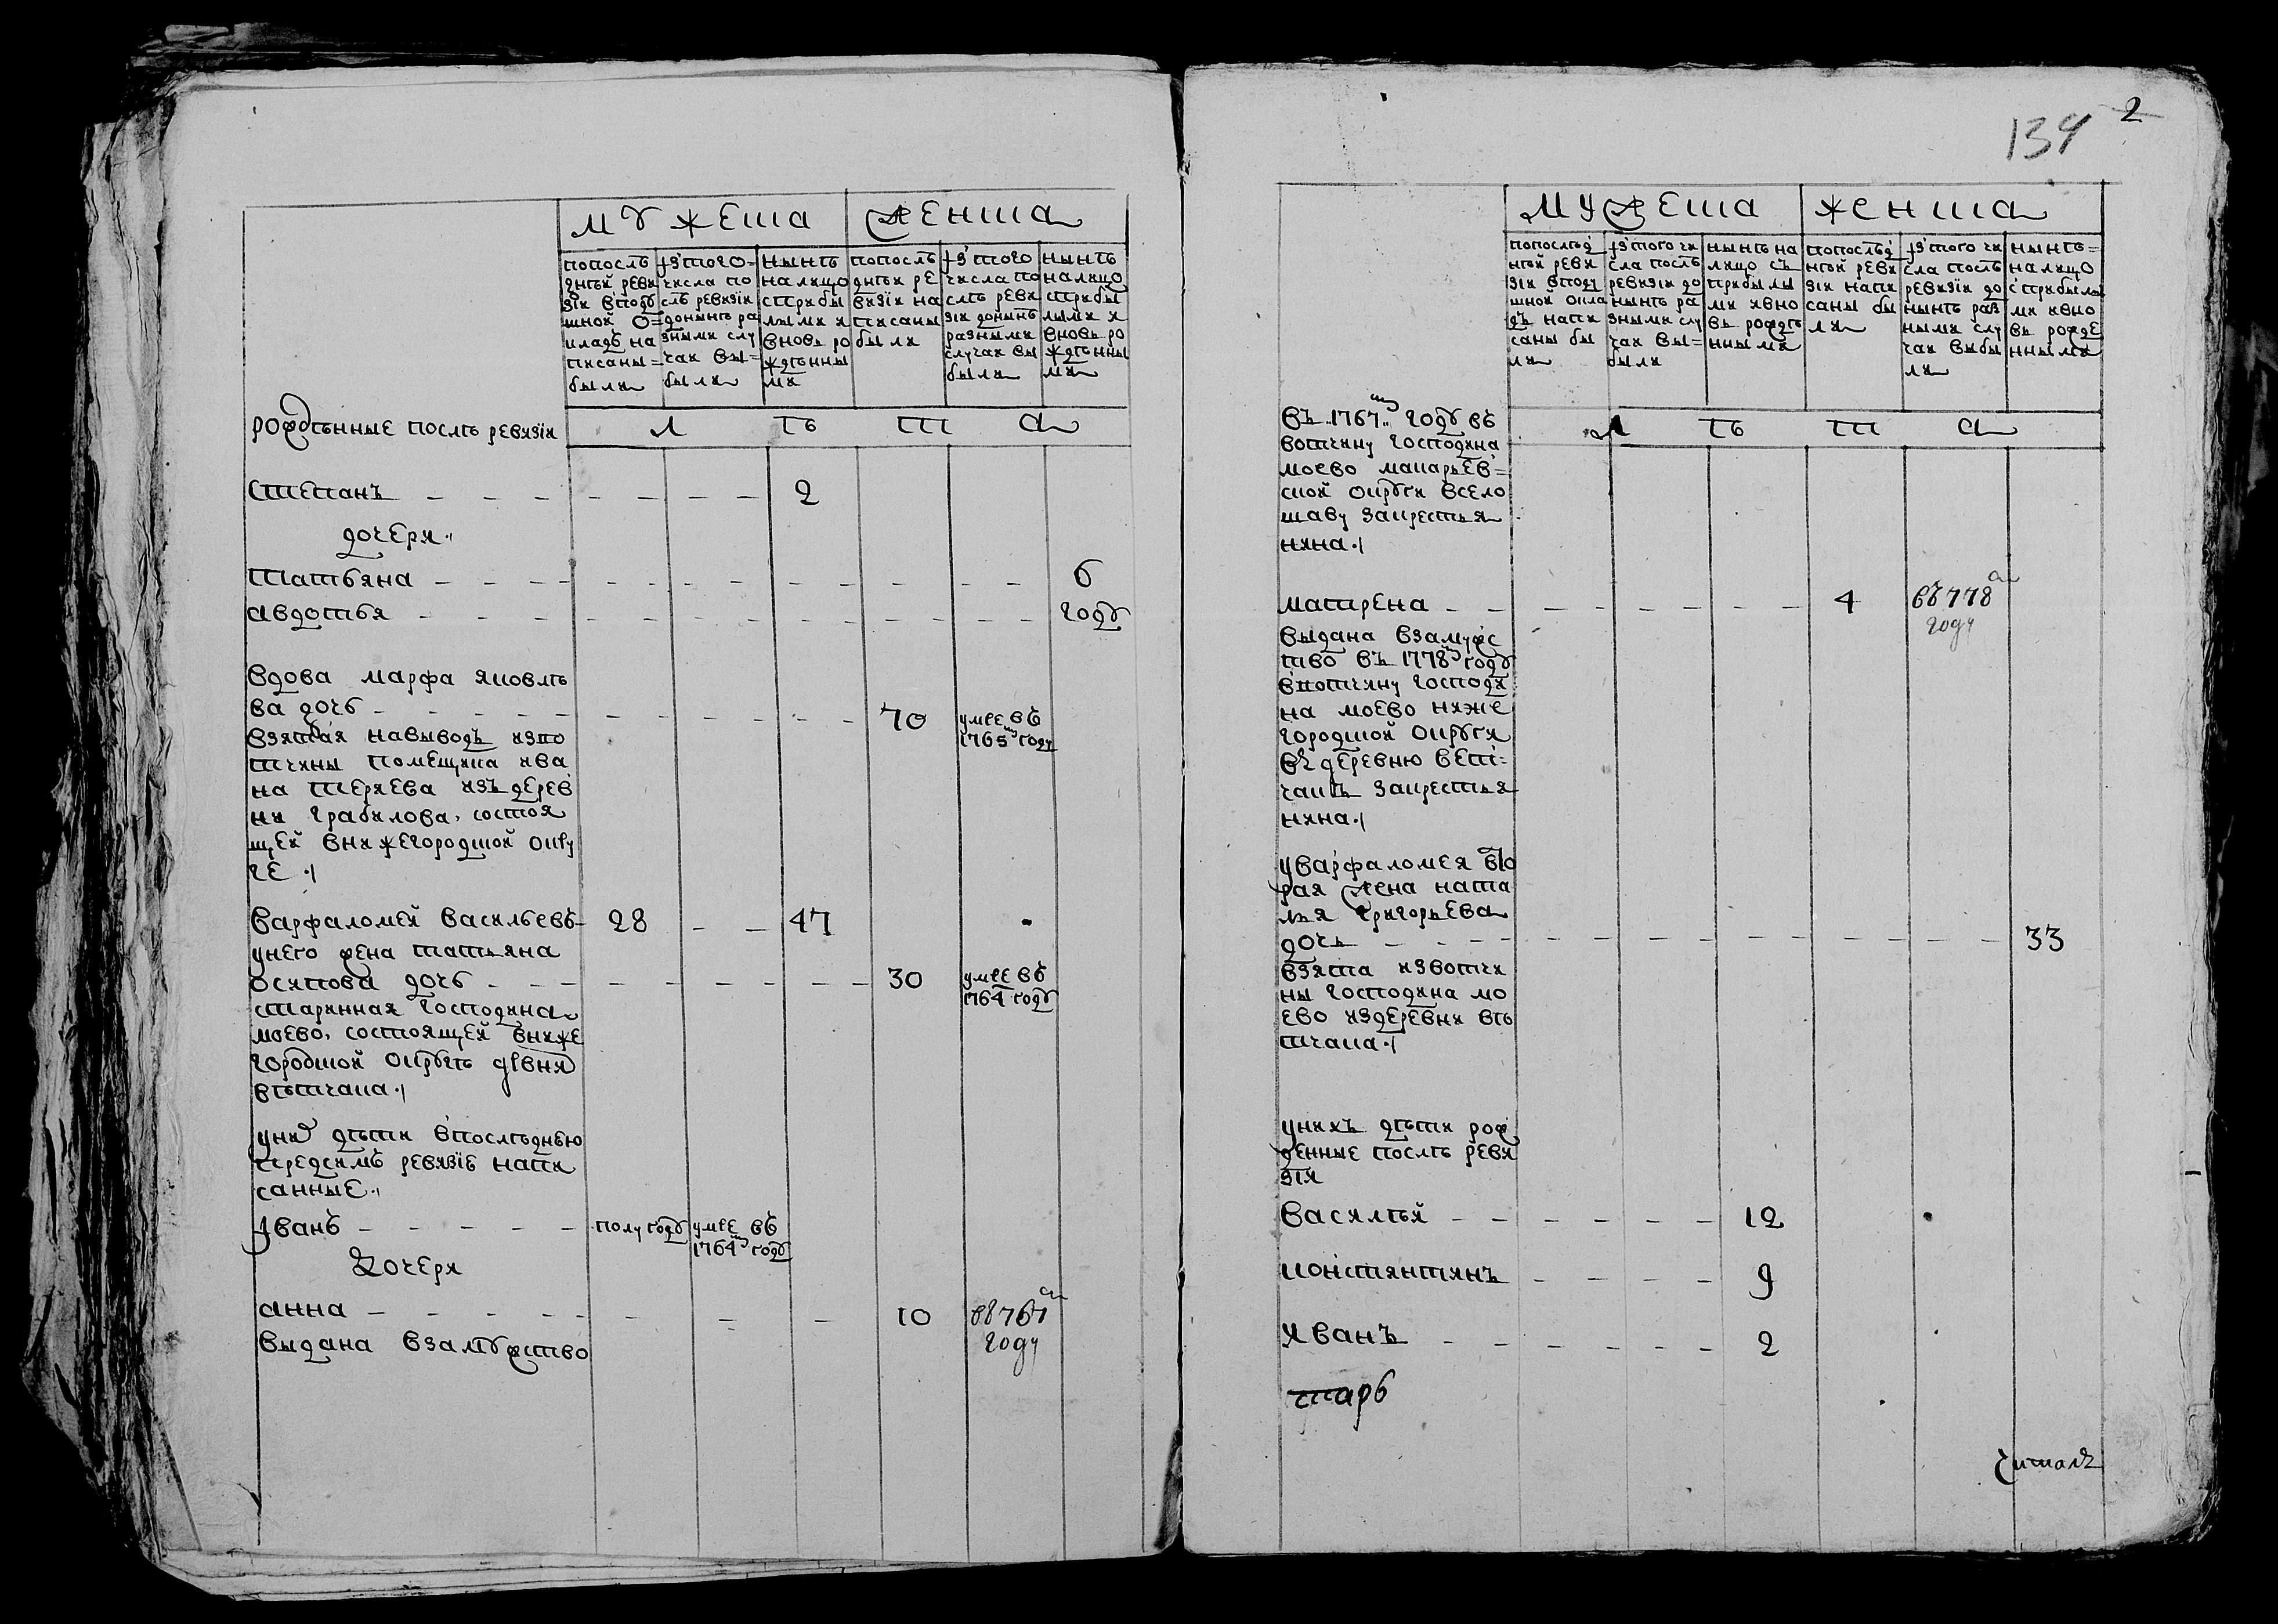 мужеска женска
попослѣ
днѣй реви
зіи вподу
шной о=
кладъ на
писаны=
были
ізтого=
числа по
слѣ ревизіи
донынѣ ра
зными слу
чаи вы=
были
нынѣ
налицо
сприбы
лыми и
вновь ро
жденны
ми
попослѣ
днѣй ре
визіи на
писаны
были
ізтого
числа по
слѣ реви
зіи донынѣ
разными
случаи вы
были
нынѣ
налицо
сприбы
лыми и
вновь ро
жденны
ми
рожденные послѣ ревизіи л ѣ т а
степанъ 2
дочери
татьяна 6
авдотья году
вдова марфа яковлѣ
ва дочь 70 умре въ
1765м году
взятая навыводъ изво
тчины помещика ива
на теряева изъ дерев
ни грабилова, состоя
щей внижегородской окру
ге
варфаломей васильевъ 28 47
унего жена татьяна
осипова дочь 30 умре въ
1764 году
старинная господина
моево, состоящей вниже
городской округѣ двни
вѣтчака
уних дѣти впослѣднею
предсимъ ревизіе напи
санные
іванъ полугоду умре въ
1764м году
дочери
анна 10 въ767м
году
выдана взамужство
134 2
мужеска женска
попослѣд
нѣй реви
зіи вподу
шной окла
дъ напи
саны бы
ли
ізтого чи
сла послѣ
ревизіи до
нынѣ ра
зными слу
чаи вы=
были
нынѣ на
лицо съ
прибылы
ми ивно
въ рожде
нными
попослѣд
нѣй реви
зіи напи
саны бы
ли
ізтого чи
сла послѣ
ревизіи до
нынѣ раз
ными слу
чаи выбы
ли
нынѣ=
налицо
сприбылы
ми ивно
въ рожде
нными
л ѣ т а
въ 1767м году въ
вотчину господина
моево макарьев=
ской округи всело
шаву закрестья
нина
матрена 4 въ778м
году
выдана взамужс
тво въ 1778м году
ввотчину господи
на моево ниже
городской округи
въ деревню вет=
чакъ закрестья
нина
уварфаломея вто
рая жена ната
лья григорьева
дочь 33
взята извотчи
ны господина мо
ево издеревни вѣ
тчака
унихъ дѣти рож
денные послѣ реви
зіи
василѣй 12
константинъ 9
иванъ 2
старъ
читалъ